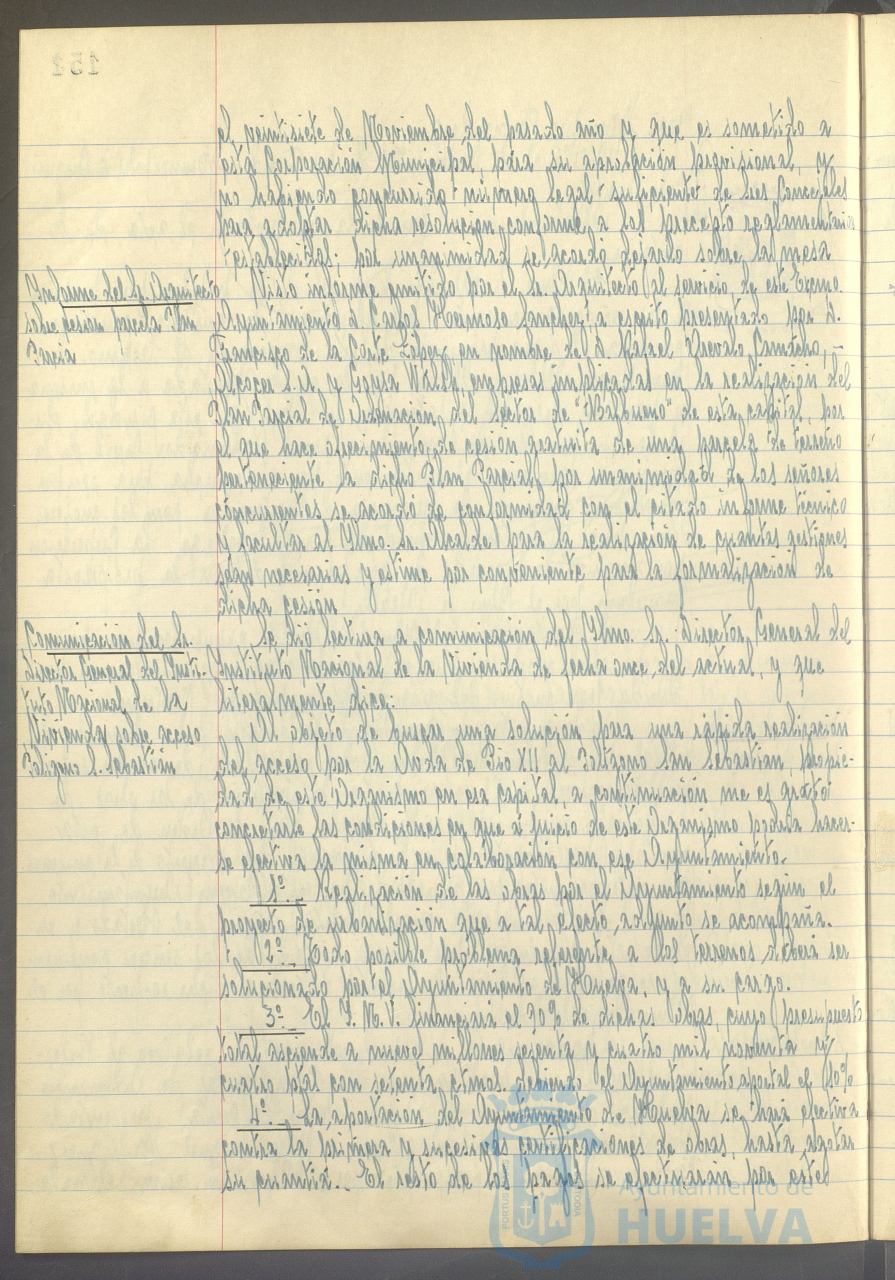 el veintisiete de Noviembre del pasado año y que es sometido a
esta Corporación Municipal, para su aprobación provisional, y
no habiendo concurrido número legal suficiente de Sres Concejales
para adoptar dicha resolución conforme a los preceptos reglamentarios
establecidos; por unanimidad se acordó dejarlo sobre la mesa
Informe del Sr. Arquitecto
sobre cesion parcela Plan
Parcial
Visto informe emitido por el Sr. Arquitecto al servicio de este Excmo.
Ayuntamiento D. Carlos Hermoso Sanchez, a escrito presentado por D.
Francisco de la Corte López, en nombre del D. Rafael Arevalo Camacho,
Alcocer S.A. y Goysa, empresas implicadas en la realización del
Plan Parcial de Ordenación del Sector de "Balbueno" de esta capital, por
el que hace ofrecimiento, de cesión gratuita de una parcela de terreno
perteneciente a dicho Plan Parcial, por unanimidad de los señores
concurrentes se acordó de conformidad con el citado informe técnico
y facultar al Ylmo. Sr. Alcalde para la realización de cuantas gestiones
sean necesarias y estime por conveniente para la formalización de
dicha cesión
Comunicación del Sr.
Director General del Insti-
tuto Nacional de la
Vivienda sobre acceso
Poligono S. Sebastián
Se dió lectura a comunicación del Ylmo. Sr. Director General del
Instituto Nacional de la Vivienda de fecha once del actual, y que
literalmente dice:
Al objeto de buscar una solución para una rápida realización
del acceso por la Avda de Pio XII al Poligono San Sebastian, propie-
dad de este Organismo en esa capital, a continuación me es grato
concretarle las condiciones en que a juicio de este Organismo podria hacer-
se efectiva la misma en colaboración con ese Ayuntamiento.
1º.- Realización de las obras por el Ayuntamiento según el
proyecto de urbanización que a tal efecto, adjunto se acompaña.
2º.- Todo posible problema referente a los terrenos deberá ser
solucionado por el Ayuntamiento de Huelva, y a su cargo.
3º.- El I.N.V. financiará el 90% de dichas obras, cuyo presupuesto
total asciende a nueve millones sesenta y cuatro mil noventa y
cuatro ptas con setenta ctmos. debiendo el Ayuntamiento aportar el 10%
4º.- La aportación del Ayuntamiento de Huelva se hará efectiva
contra la primera y sucesivas certificaciones de obras, hasta agotar
su cuantia.. El resto de los pagos se efectuarán por este
Ayuntamiento de
HUELVA